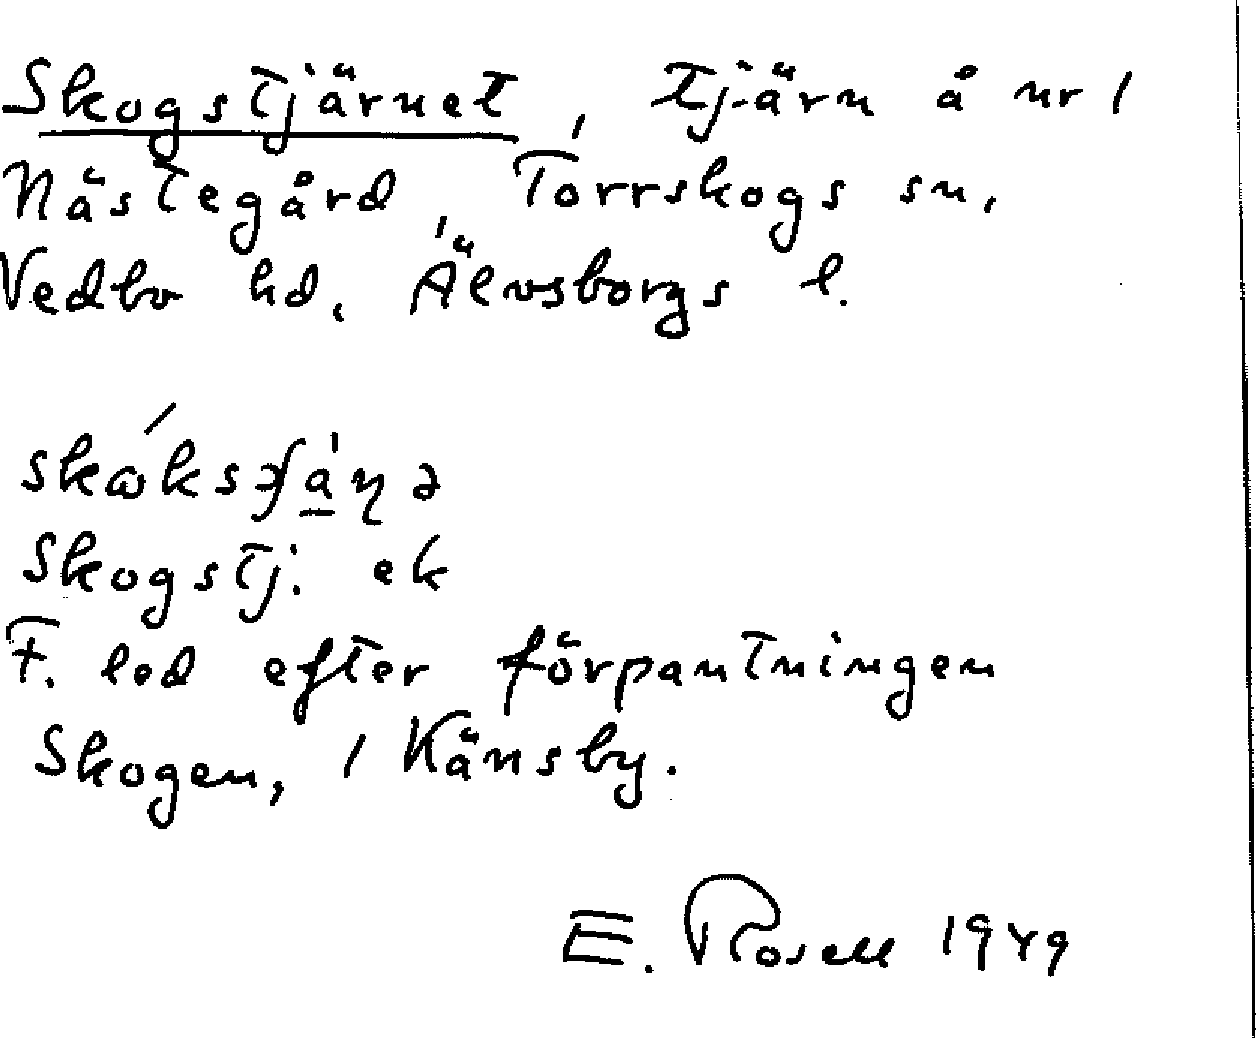 Skogstjärnet, tjärn å nr 1
Nästegård, Torrskogs sn,
Vedbo hd, Älvsborgs l.
Skogstj. ek
F. led efter förpantningen
Skogen, 1 Känsby.
E. Rosell 1949